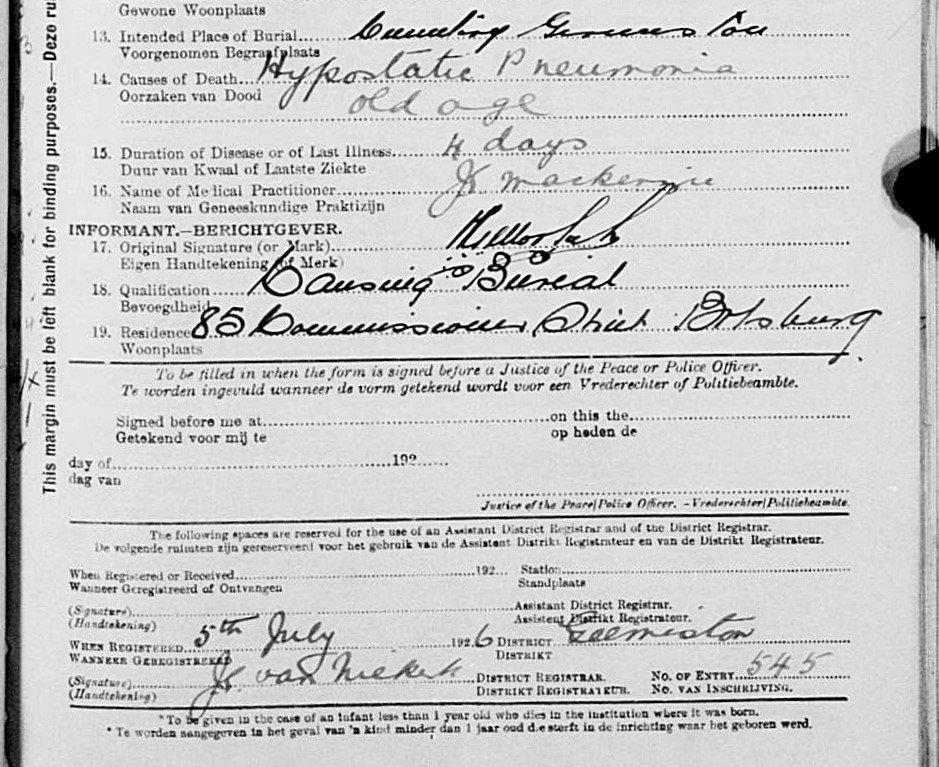 Gewone Woonplaats
13. Intended Place of Burial
Germiston
Voorgenomen Begrafplaats
14. Causes of Death Hypostatic Pneumonia
Oorzaken van Dood old age
15. Duration of Disease or of Last Illness 4 days
Duur van Kwaal of Laatste Ziekte
16. Name of Medical Practitioner Mackenzie
Naam van Geneeskundige Praktizijn
INFORMANT.—BERICHTGEVER.
17. Original Signature (or Mark)
Eigen Handtekening (of Merk)
18. Qualification Causing Burial
Bevoegdheid
19. Residence 85 Commissioner Street Boksburg
Woonplaats
To be filled in when the form is signed before a Justice of the Peace or Police Officer.
Te worden ingevuld wanneer de vorm getekend wordt voor een Vrederechter of Politiebeambte.
Signed before me at on this the
Getekend voor mij te op heden de
day of 192
dag van
Justice of the Peace/Police Officer. —Vrederechter/Politiebeambte.
The following spaces are reserved for the use of an Assistant District Registrar and of the District Registrar.
De volgende ruimten zijn gereserveerd voor het gebruik van de Assistent Distrikt Registrateur en van de Distrikt Registrateur.
When Registered or Received 192 Station
Wanneer Geregistreerd of Ontvangen Standplaats
(Signature) Assistant District Registrar.
(Handtekening) Assistent Distrikt Registrateur.
WHEN REGISTERED 5th July 1926 DISTRICT Germiston
WANNEER GEREGISTREERD DISTRIKT
(Signature) van Niekerk DISTRICT REGISTRAR. NO. OF ENTRY 545
(Handtekening) DISTRIKT REGISTRATEUR. NO. VAN INSCHRIJVING.
*To be given in the case of an infant less than 1 year old who dies in the institution where it was born.
*Te worden aangegeven in het geval van 'n kind minder dan 1 jaar oud die sterft in de inrichting waar het geboren werd.
This margin must be left blank for binding purposes.—Deze